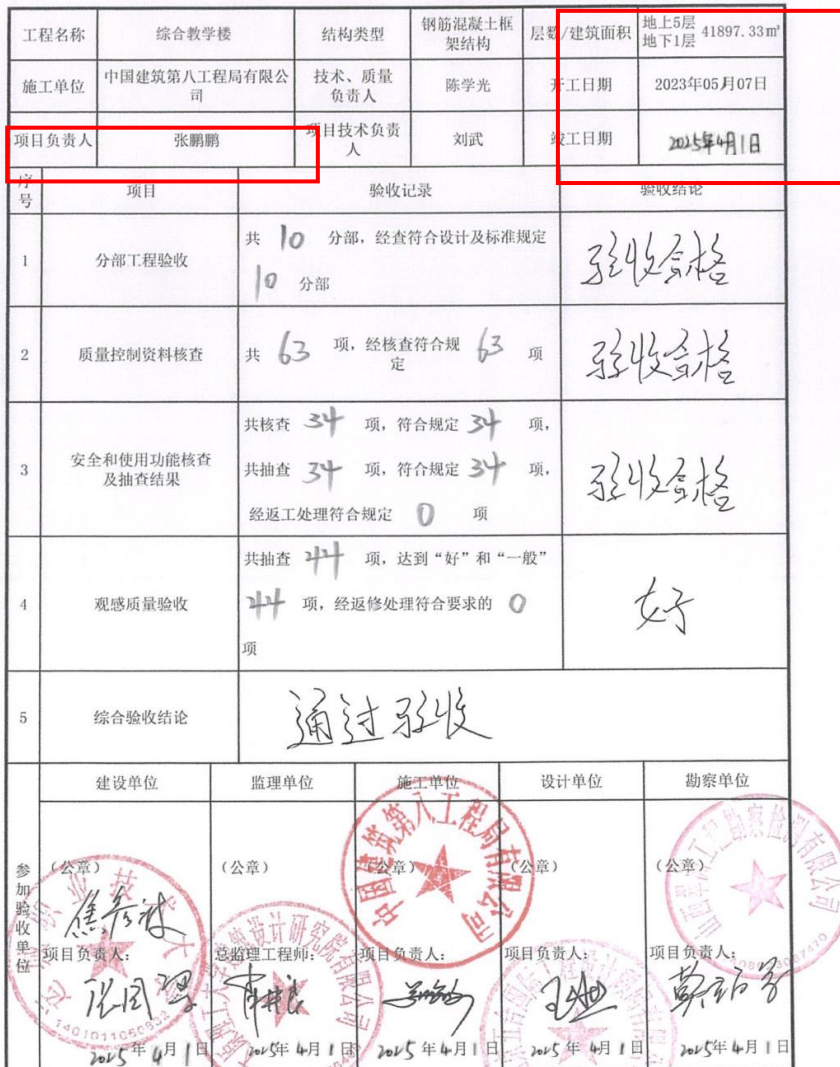 工程名称 综合教学楼 结构类型 钢筋混凝土框架结构 层数/建筑面积 地上5层 地下1层 41897.33㎡
施工单位 中国建筑第八工程局有限公司 技术、质量负责人 陈学光 开工日期 2023年05月07日
项目负责人 张鹏鹏 项目技术负责人 刘武 竣工日期 2025年4月1日
序号 项目 验收记录 验收结论
1 分部工程验收 共 10 分部，经查符合设计及标准规定
10 分部
验收合格
2 质量控制资料核查 共 63 项，经核查符合规定 63 项
验收合格
3 安全和使用功能核查及抽查结果
共核查 34 项，符合规定 34 项，
共抽查 34 项，符合规定 34 项，
经返工处理符合规定 0 项
验收合格
4 观感质量验收
共抽查 44 项，达到“好”和“一般”
44 项，经返修处理符合要求的 0
项
好
5 综合验收结论 通过验收
参加验收单位
建设单位 监理单位 施工单位 设计单位 勘察单位
（公章） （公章） （公章） （公章） （公章）
中国建筑第八工程局有限公司
项目负责人： 总监理工程师： 项目负责人： 项目负责人： 项目负责人：
2025年4月1日 2025年4月1日 2025年4月1日 2025年4月1日 2025年4月1日